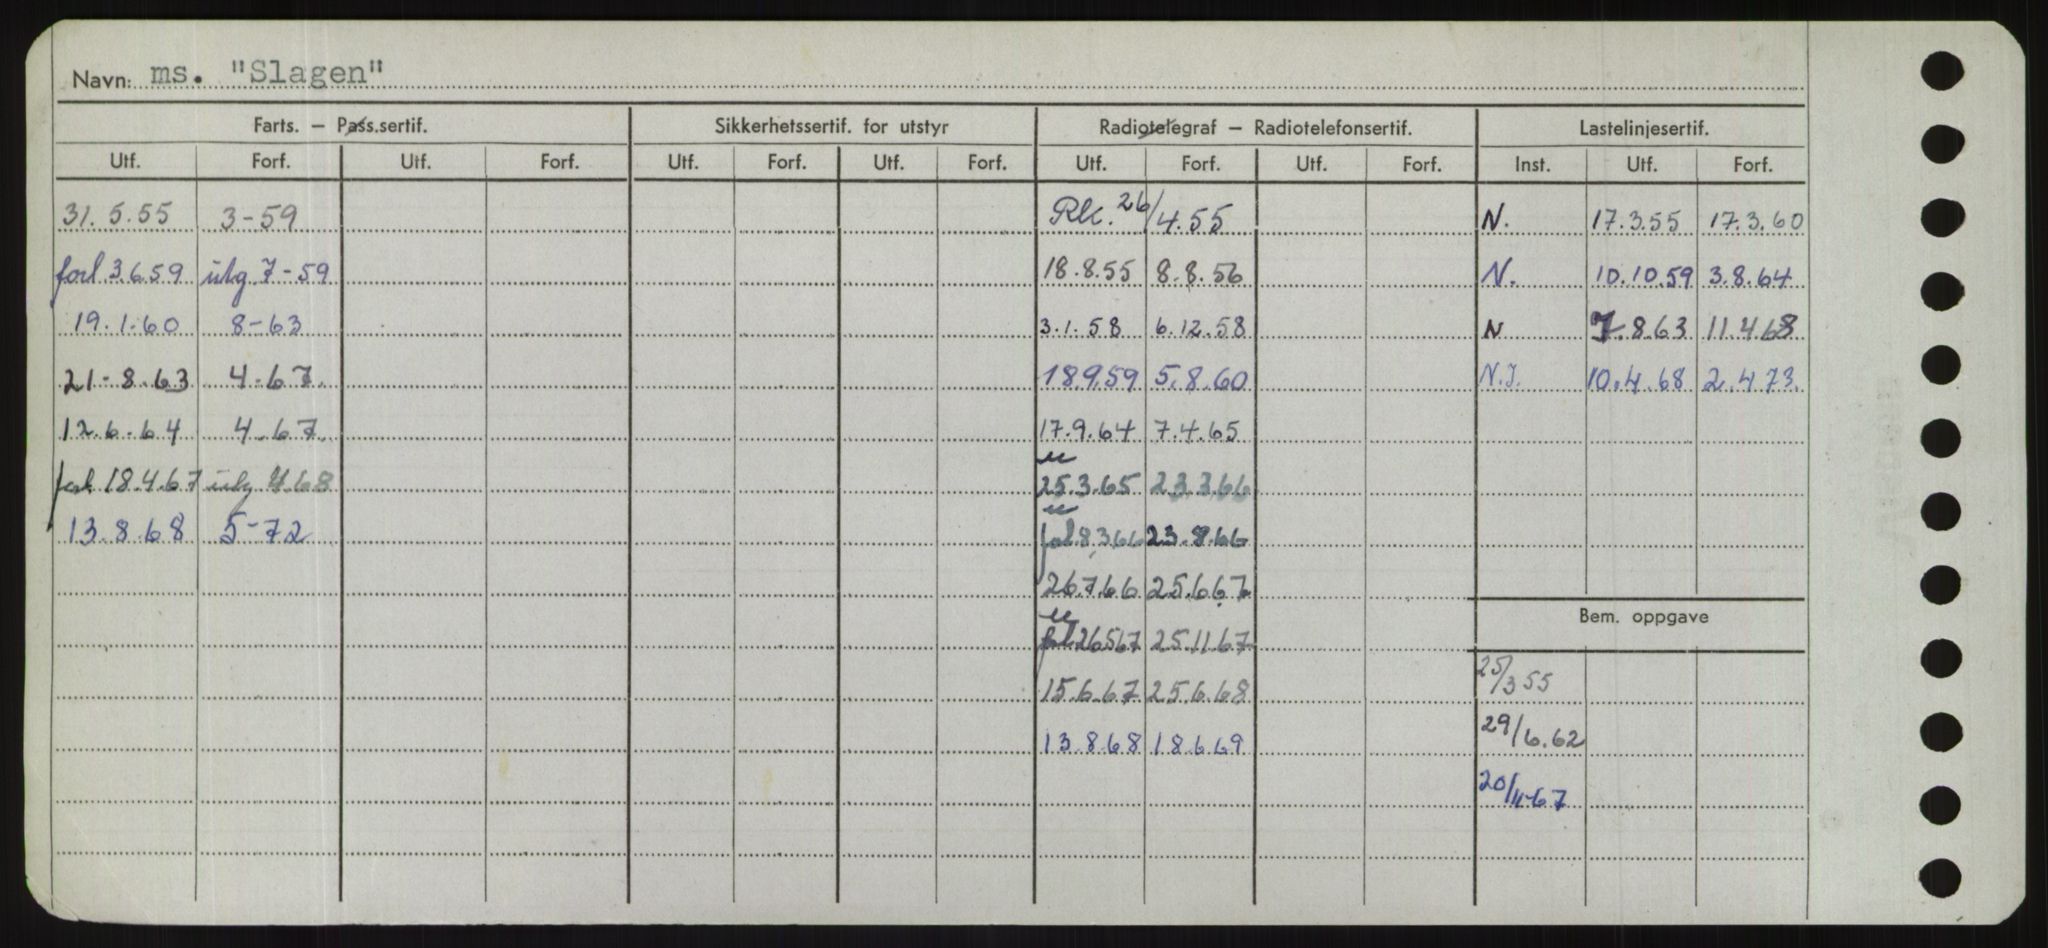 Navn: ms. "Slagen"
Farts. – Pass.sertif. Sikkerhetssertif. for utstyr Radiotelegraf – Radiotelefonsertif. Lastelinjesertif.
Utf. Forf. Utf. Forf. Utf. Forf. Utf. Forf. Utf. Forf. Utf. Forf. Inst. Utf. Forf.
31. 5. 55 3-59 Rk. 26/4.55 N. 17.3.55 17.3.60
forl 3.6.59 utg 7-59 18.8.55 8.8.56 N. 10.10.59 3.8.64
19.1.60 8-63 3.1.58 6.12.58 N 7.8.63 11.4.68
21-8.63 4-67. 18.9.59 5.8.60 N.I. 10.4.68 2.4.73.
12.6-64 4.67. 17.9.64 7.4.65
forl 18.4.67 utg 4.68 25.3.65 23.3.66
13.8.68 5-72 forl 8.3.66 23.8.66
26.7.66 25.6.67
Bem. oppgave
forl 26.5.67 25.11.67
25/3 55
15.6.67 25.6.68
29/6.62
13.8.68 18.6.69
20/11-67